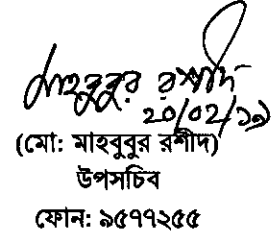 মাহবুবুর রশীদ
২০/০২/১৯
(মো: মাহবুবুর রশীদ)
উপসচিব
ফোন: ৯৫৭৭২৫৫